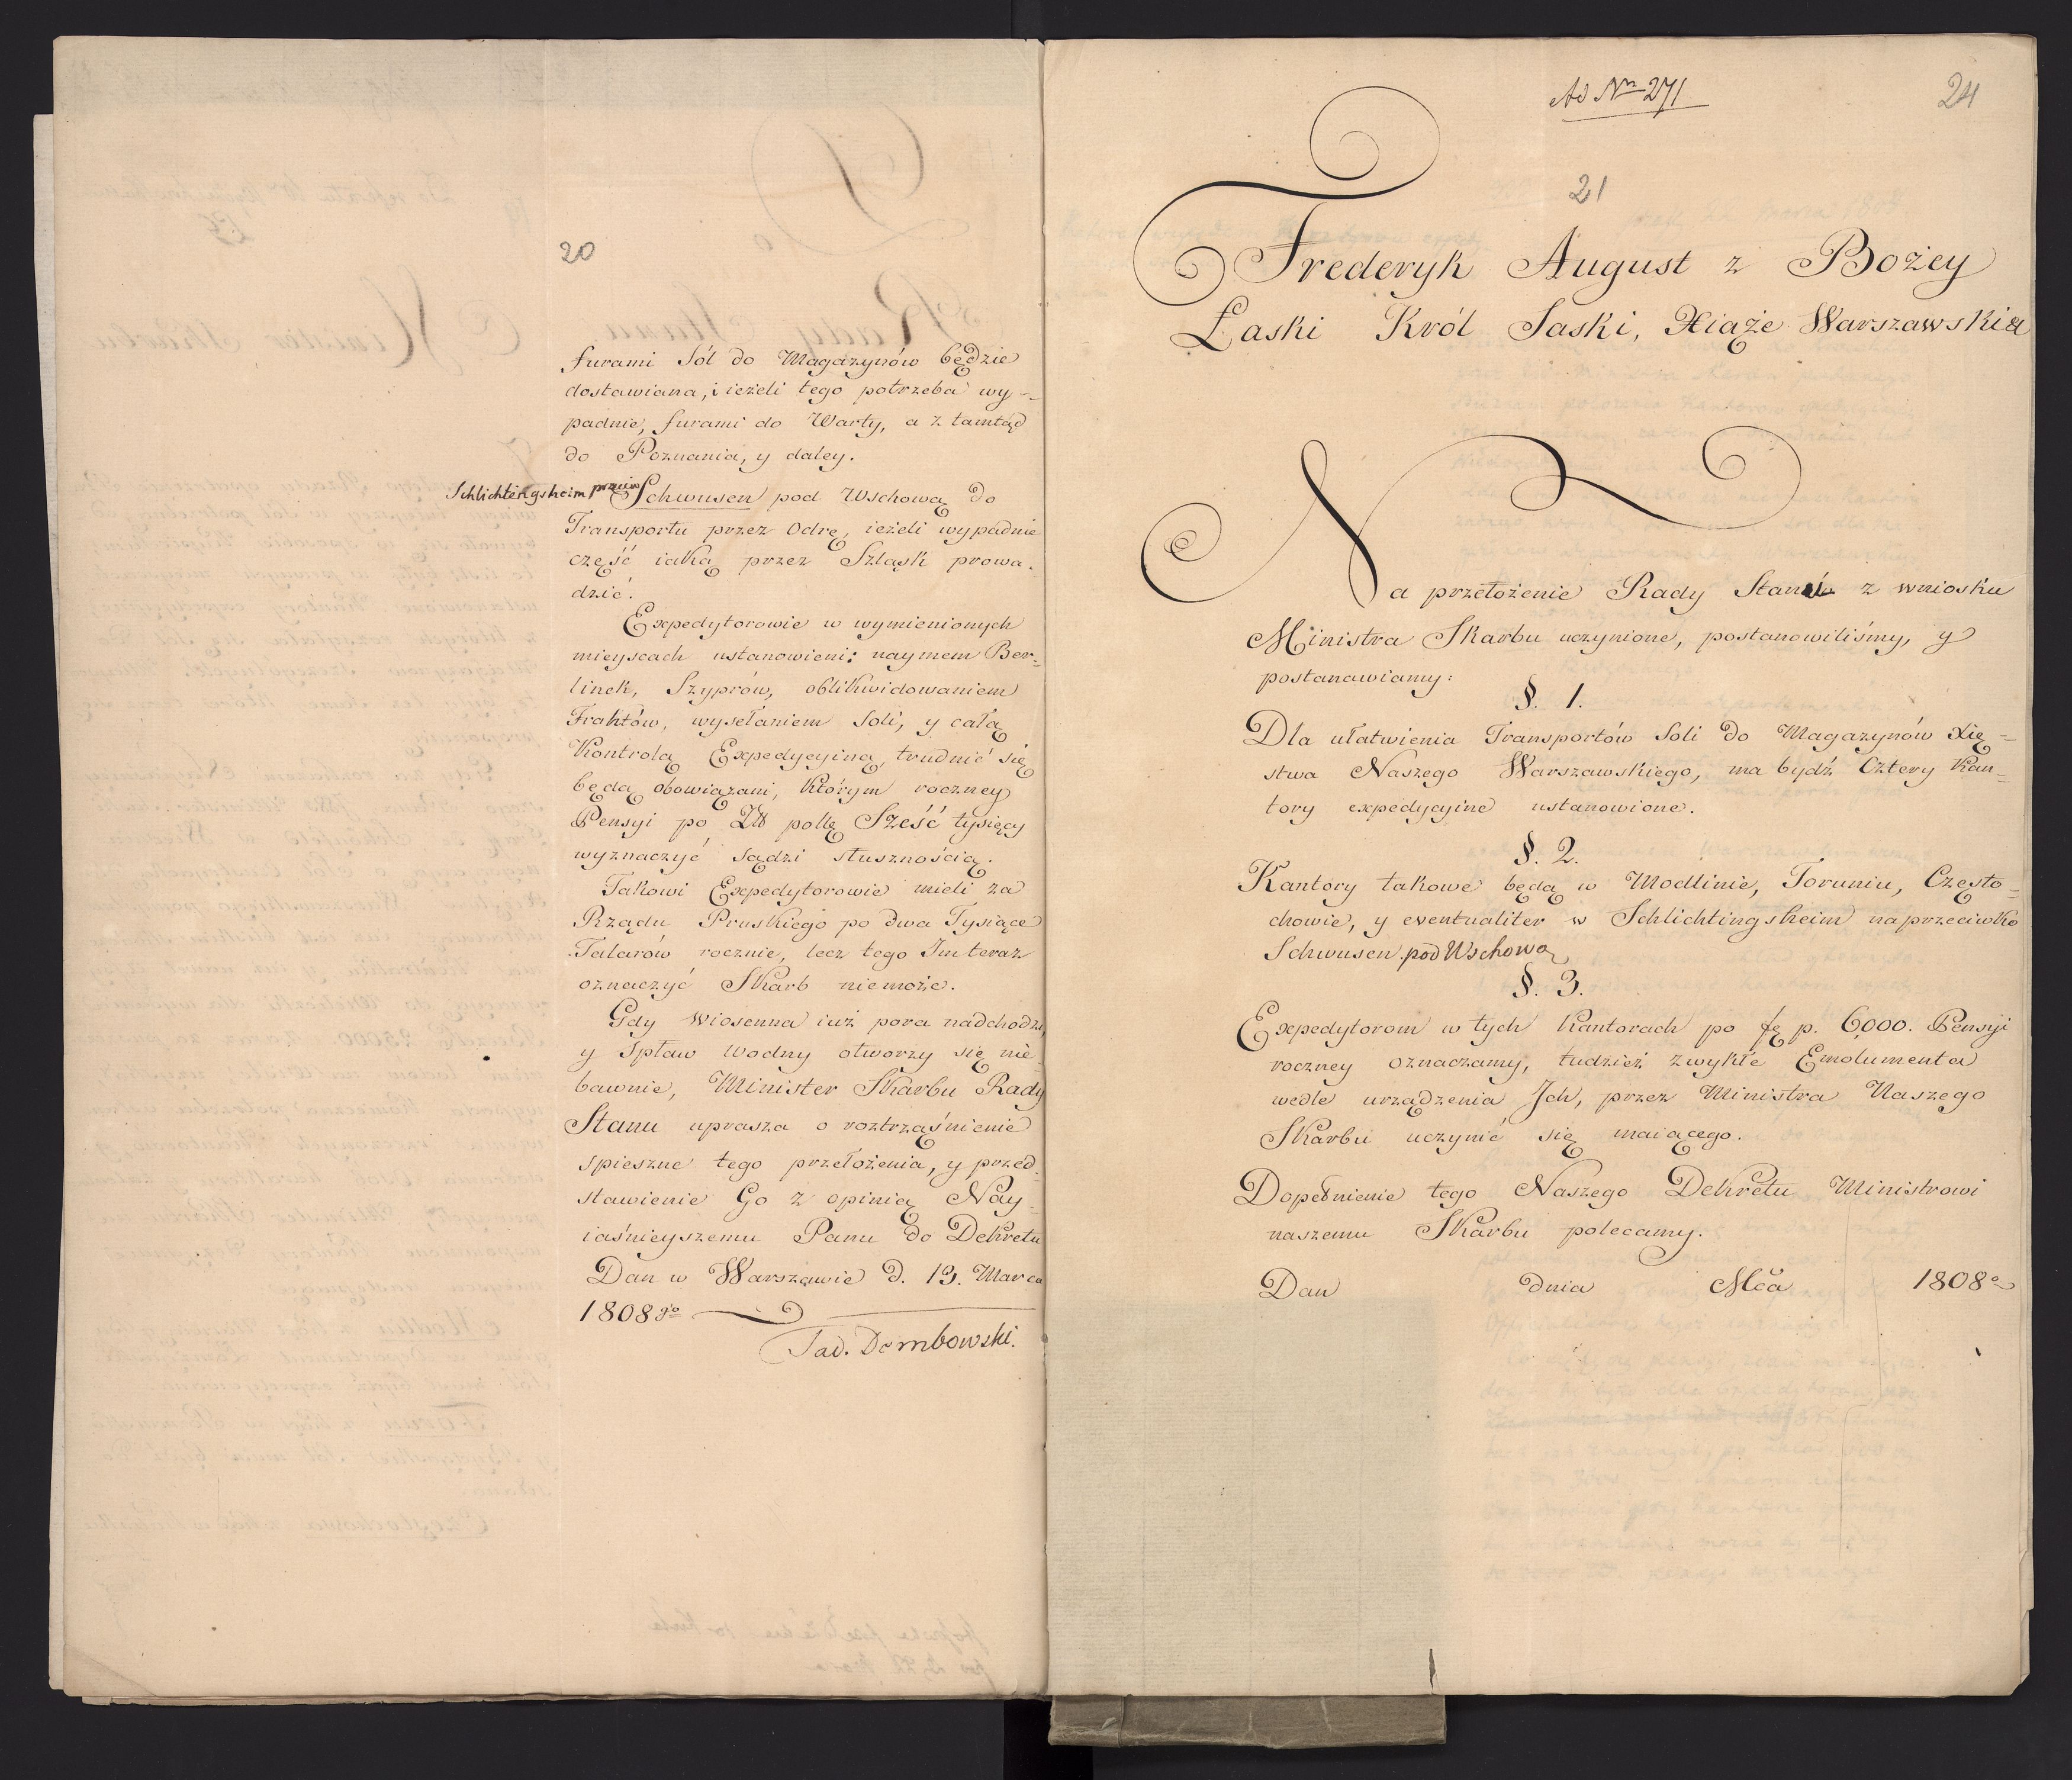 20
furami Sól do Magazynów będzie
dostawiana, i ieżeli tego potrzeba wy-
padnie, furami do Warty, a z tamtąd
do Poznania, y daley.
Schlichtingsheim przeciw Schwusen pod Wschową do
Transportu przez Odrę, ieżeli wypadnie
część iaką przez Szląsk prowa-
dzić.
Expedytorowie w wymienionych
mieyscach ustanowieni: naymem Ber-
linek, Szyprów, oblikwidowaniem
Frahtów, wysełaniem Soli, y całą
Kontrolą Expedycyiną, trudnić się
będą obowiązani, Którym roczney
Pensyi po polk Sześć tysięcy
wyznaczyć sądzi słusznością.
Takowi Expedytorowie mieli za
Rządu Pruskiego po dwa Tysiące
Talarów rocznie, lecz tego Im teraz
oznaczyć Skarb niemoże.
Gdy wiosenna iuż pora nadchodzi,
y Spław wodny otworzy się nie-
bawnie, Minister Skarbu Rady
Stanu uprasza o roztrząśnienie
spieszne tego przełożenia, y przed-
stawienie Go z opinią Nay-
iaśnieyszemu Panu do Dekretu
Dan w Warszawie d. 13. Marca
1808go
Tad. Dembowski.
Ad Nrm 271
24
21
Frederyk August z Bożey
Łaski Król Saski, Xiąże Warszawski &
Na przełożenie Rady Stanu z wniosku
Ministra Skarbu uczynione, postanowiliśmy, y
postanawiamy:
§. 1.
Dla ułatwienia Transportów Soli do Magazynów Xię-
stwa Naszego Warszawskiego, ma bydź Cztery Kan-
tory expedycyine ustanowione.
§. 2.
Kantory takowe będą w Modlinie, Toruniu, Często-
chowie, y eventualiter w Schlichtingsheim naprzeciwko
Schwusen pod Wschową
§. 3.
Expedytorom w tych Kantorach po p. 6000. Pensyi
roczney oznaczamy, tudzież zwykłe Emolumenta
wedle urządzenia Ich, przez Ministra Naszego
Skarbu uczynić się maiącego.
Dopełnienie tego Naszego Dekretu Ministrowi
naszemu Skarbu polecamy.
Dan dnia Mca 1808o